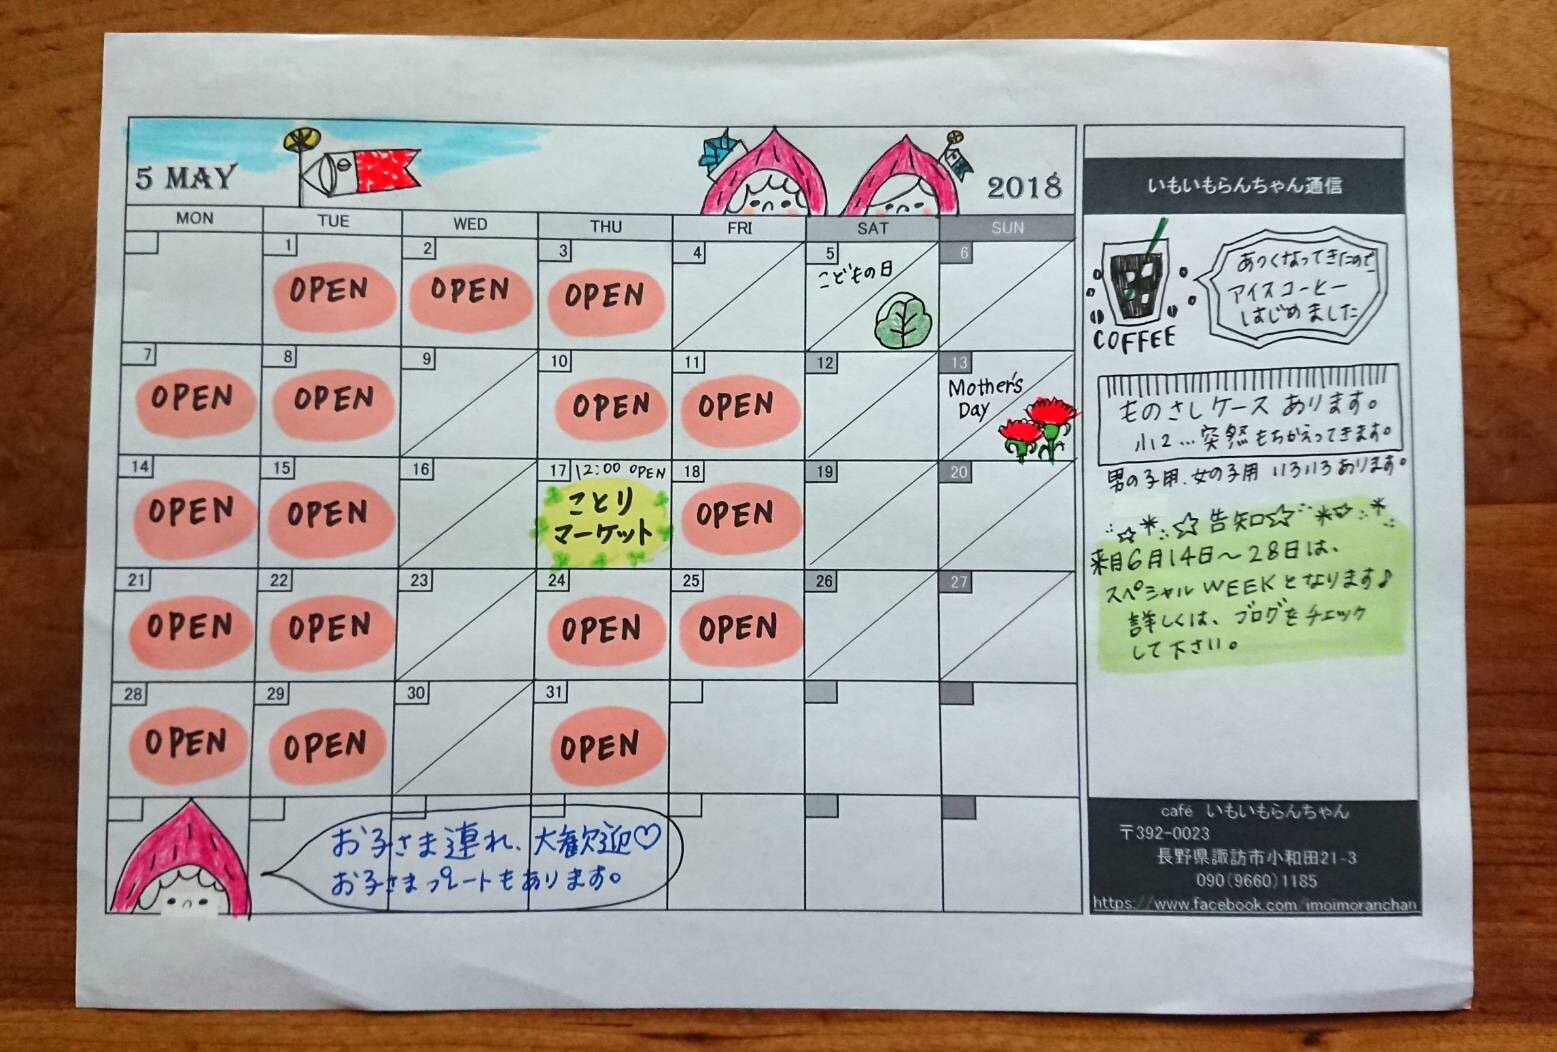 5 MAY
2018
MON TUE WED THU FRI SAT SUN
1 2 3 4 5 6
OPEN OPEN OPEN こどもの日
7 8 9 10 11 12 13
OPEN OPEN OPEN OPEN Mother's
Day
14 15 16 17 12:00 OPEN 18 19 20
OPEN OPEN ことり OPEN
マーケット
21 22 23 24 25 26 27
OPEN OPEN OPEN OPEN
28 29 30 31
OPEN OPEN OPEN
お子さま連れ、大歓迎♡
お子さまプレートもあります。
いもいもらんちゃん通信
あつくなってきたので
アイスコーヒー
はじめました
COFFEE
ものさしケース あります。
小2…突然もちかえってきます。
男の子用、女の子用 いろいろあります。
☆告知☆
来月6月14日〜28日は、
スペシャルWEEKとなります♪
詳しくは、ブログをチェック
して下さい。
café いもいもらんちゃん
〒392-0023
長野県諏訪市小和田21-3
090(9660)1185
https://www.facebook.com/imoimoranchan